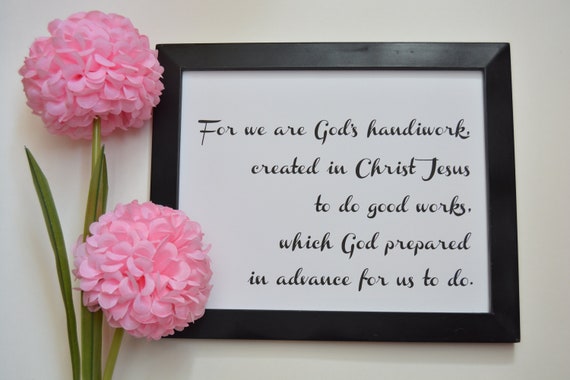 For we are God's handiwork,
created in Christ Jesus
to do good works,
which God prepared
in advance for us to do.